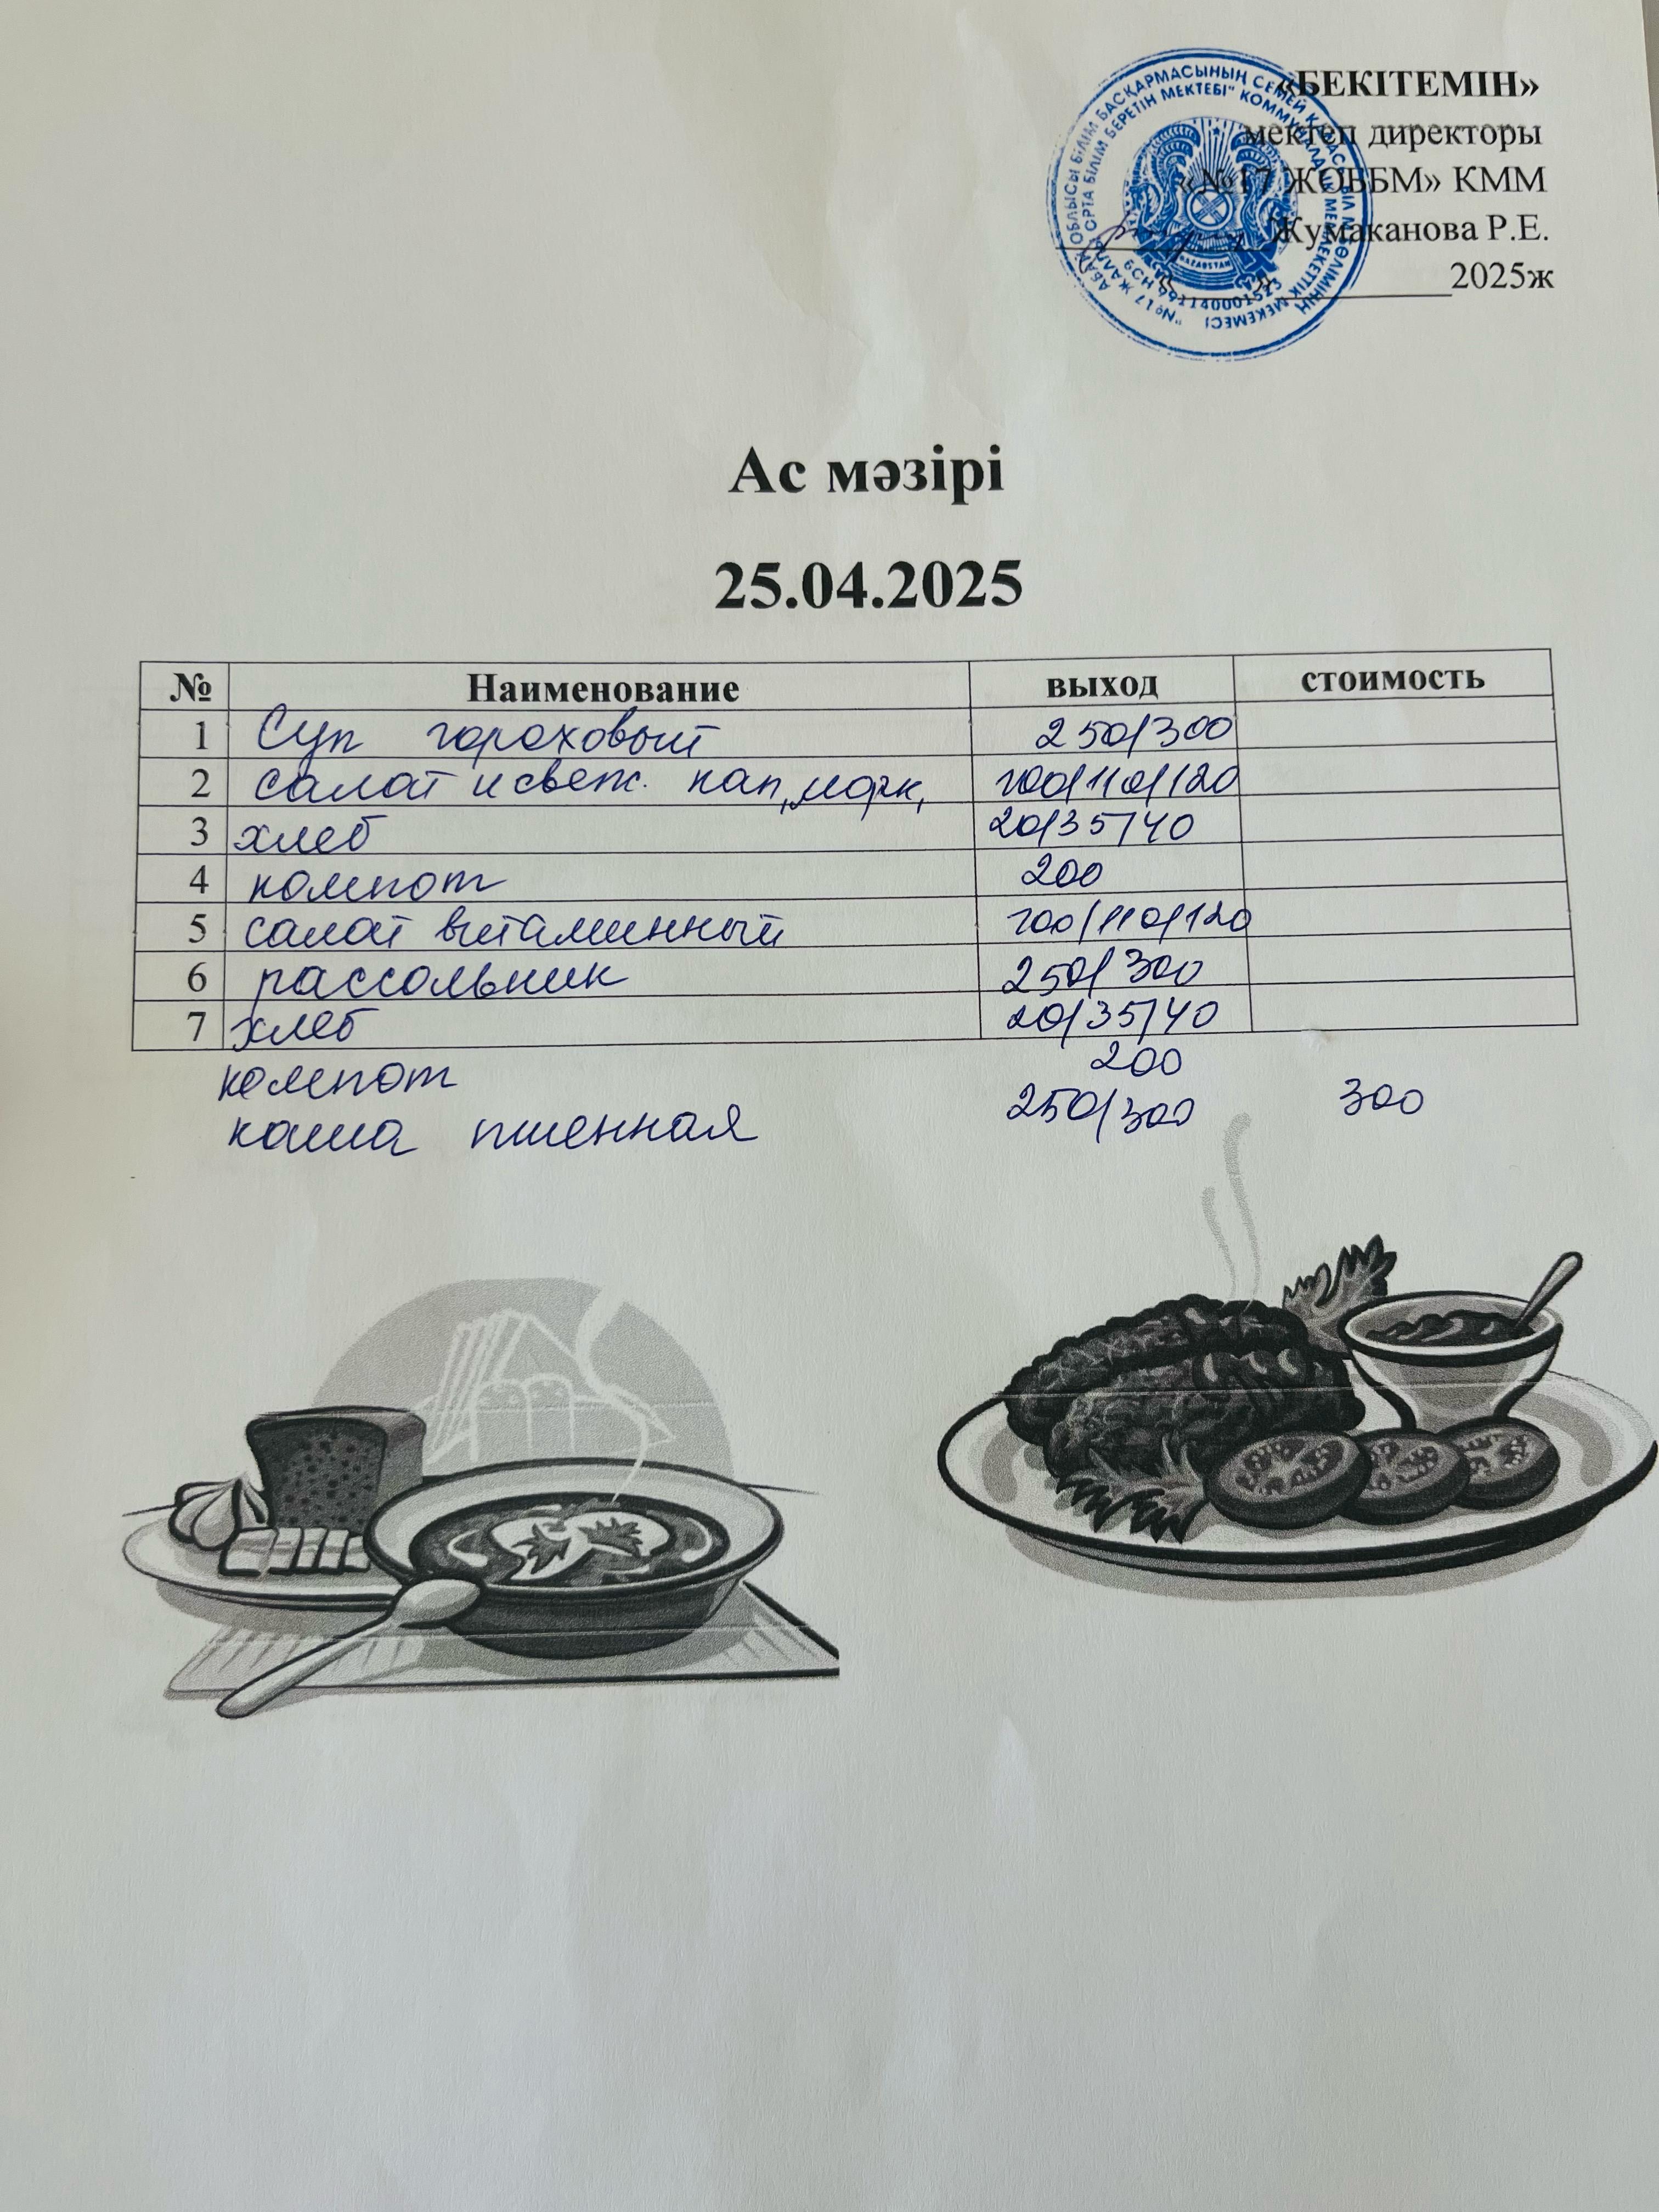 «БЕКІТЕМІН»
мектеп директоры
«№17 ЖОББМ» КММ
Жумаканова Р.Е.
2025ж
АБАЙ ОБЛЫСЫ БІЛІМ БАСҚАРМАСЫНЫҢ СЕМЕЙ
"№17 ЖАЛПЫ ОРТА БІЛІМ БЕРЕТІН МЕКТЕБІ" КОММУНАЛДЫҚ МЕМЛЕКЕТТІК МЕКЕМЕСІ
БСН 991140001523
KAZAKHSTAN
Ас мәзірі
25.04.2025
№ Наименование выход стоимость
1 Суп гороховый 250/300
2 салат и свеж. кап, морк, 100/110/120
3 хлеб 20/35/40
4 компот 200
5 салат витаминный 100/110/120
6 рассольник 250/300
7 хлеб 20/35/40
компот 200
каша пшенная 250/300 300